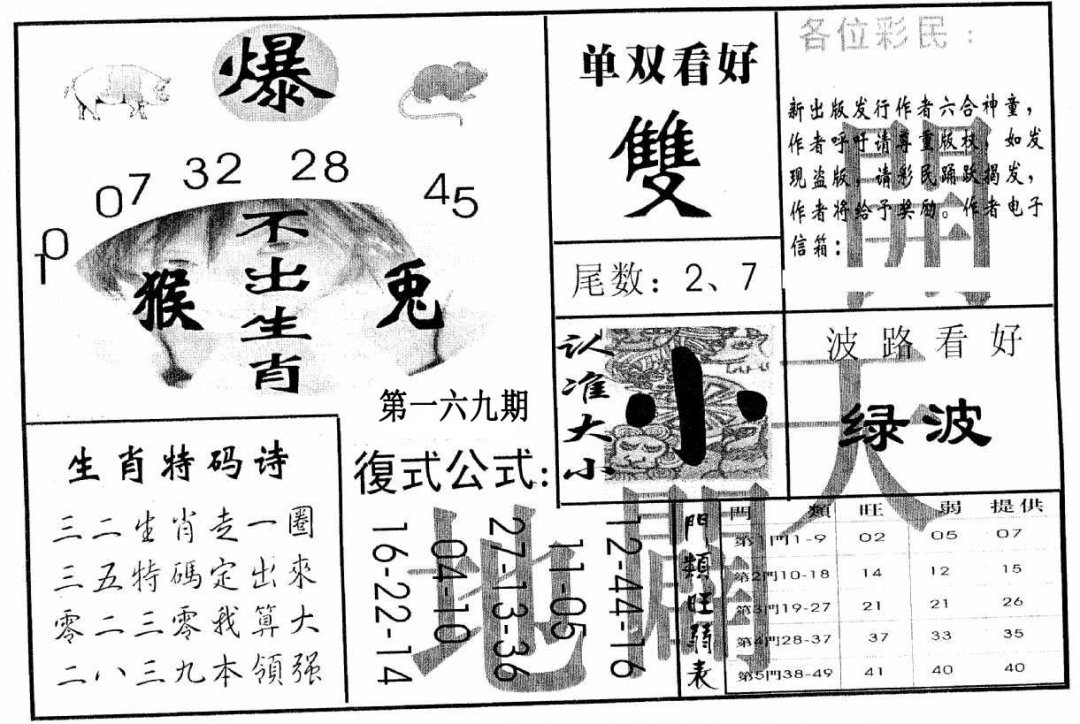 爆
07 32 28 45
10
不出生肖
猴
兎
第一六九期
单双看好
雙
尾数：2、7
各位彩民：
新出版发行作者六合神童，
作者呼吁请尊重版权，如发
现盗版，请彩民踊跃揭发，
作者将给予奖励。作者电子
信箱：
認准大小
小
波路看好
绿波
開天
闢地
生肖特码诗
三二生肖走一圈
三五特碼定出來
零二三零我算大
二八三九本領强
復式公式：
16-22-14
04-10
27-13-36
11-05
12-44-16
門類旺弱表
門類 旺 弱 提供
第1門1-9 02 05 07
第2門10-18 14 12 15
第3門19-27 21 21 26
第4門28-37 37 33 35
第5門38-49 41 40 40